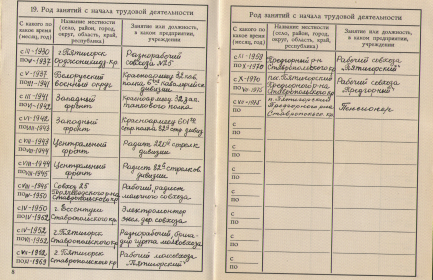 19. Род занятий с начала трудовой деятельности
С какого по какое время (месяц, год)
Название местности (село, район, город, округ, область, край, республика)
Занятие или должность, в каком предприятии, учреждении
с III-1930
по V-1937
г. Пятигорск
Орджоникидз. кр.
Разнорабочий
совхоза №25
с V-1937
по VI-1941
Белорусский
военный округ
Красноармеец 32 кав.
полка, 6ой кавалерийск.
дивизии
с III-1941
по 1942
Западный
фронт
Красноармеец 32 зап.
танкового полка
с VI-1942
по 1943
Западный
фронт
Красноармеец
стр. полка
дивиз.
с VII-1943
по 1944
Центральный
фронт
Радист
стрелк.
дивизии
с VIII-1944
по 1945
Центральный
фронт
Радист 82й стрелков.
дивизии
с VIII-1945
по IV-1950
Совхоз 25
Ставропольского кр.
Рабочий, радист
совхоза
с IV-1950
по IV-1952
г. Ессентуки
Ставропольского кр
Электромонтер
совхоза
с IV-1952
по VII-1962
г. Пятигорск
Ставропольского кр.
Разнорабочий, брига-
дир
с VII-1962
по 1969
г. Пятигорск
Ставропольского кр.
Рабочий
"Пятигорский"
8
Род занятий с начала трудовой деятельности
С какого по какое время (месяц, год)
Название местности (село, район, город, округ, область, край, республика)
Занятие или должность, в каком предприятии, учреждении
с XI-1969
по X-1970
Предгорный р-н
Ставропольского кр.
Рабочий совхоза
"Пятигорский"
с X-1970
по VII-1975
пос. Пятигорский
Предгорного р-на
Ставропольского кр.
Рабочий совхоза
"Предгорный"
с VII-1975
по
п. Пятигорский
Предгорного р-на
Ставропольского кр.
Пенсионер
с
по
с
по
с
по
с
по
с
по
с
по